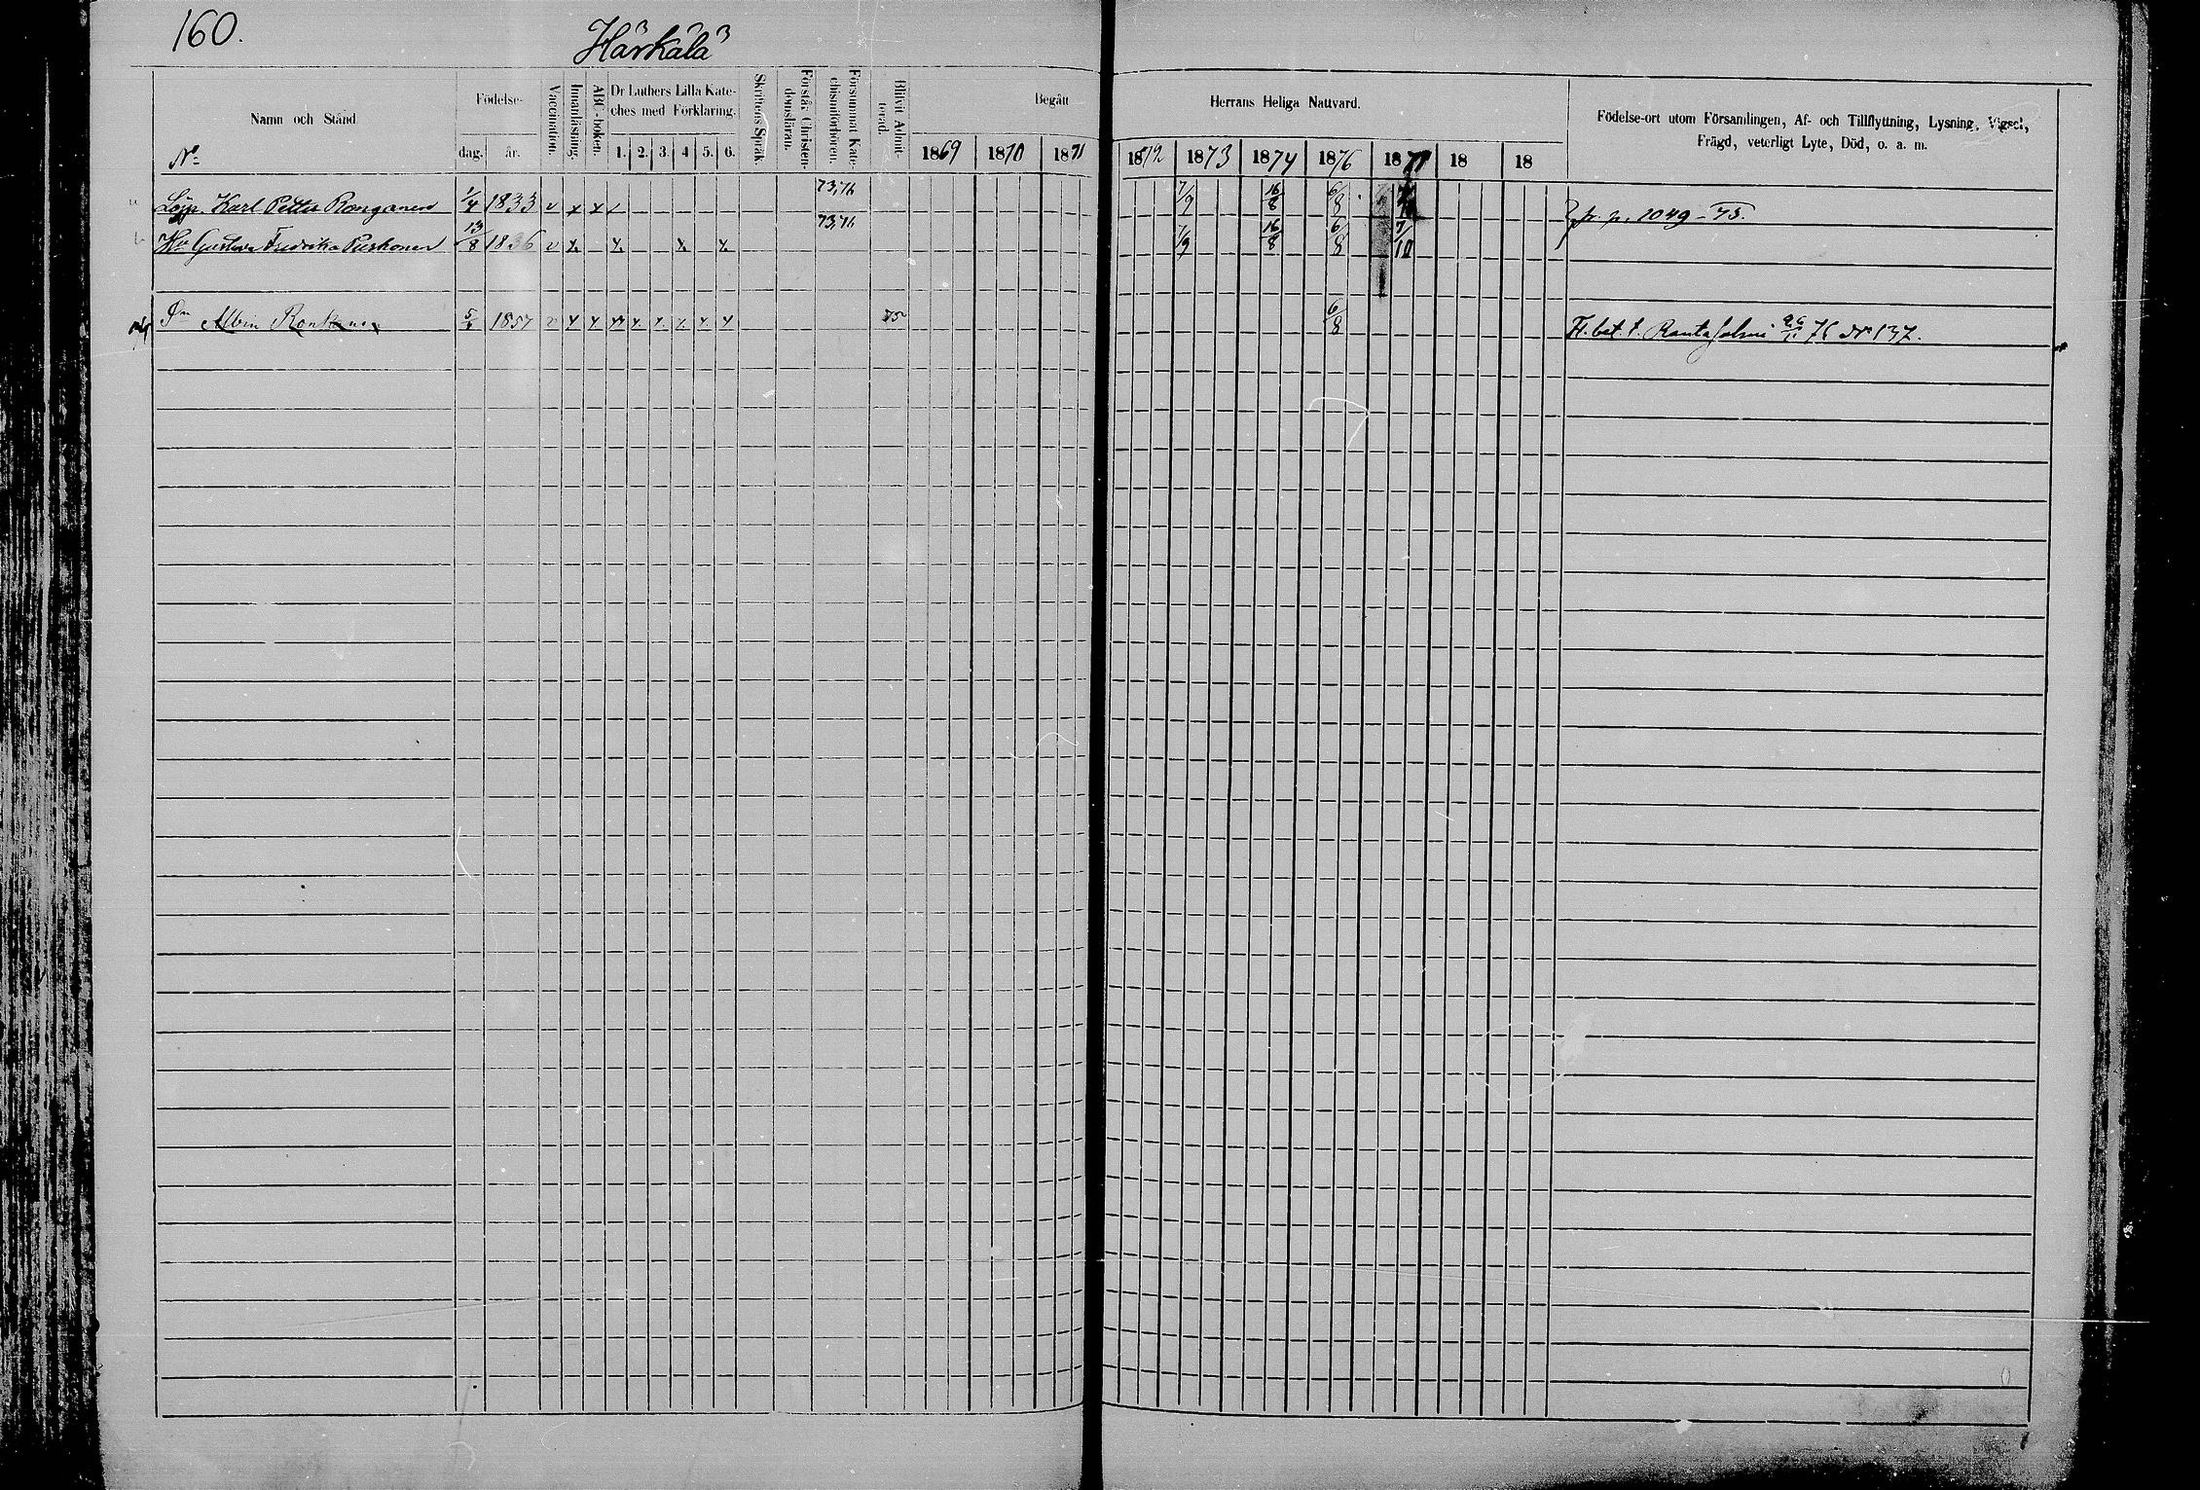 160.
Härkälä
Namn och Stånd
No
Födelse-
dag. år.
Vaccination.
Innanläsning.
ABC-boken.
Dr Luthers Lilla Kate-
ches med Förklaring.
1. 2. 3. 4 5. 6.
Skriftens Språk
Förstår Christen-
domsläran.
Försummat Kate-
chismiförhören.
Blifvit Admit-
terad.
Begått Herrans Heliga Nattvard.
1869 1870 1871 1872 1873 1874 1876 1877 18 18
Födelse-ort utom Församlingen, Af- och Tillflyttning, Lysning, Vigsel,
Frägd, veterligt Lyte, Död, o. a. m.
Karl Petter Ronganen 1/4 1833 v x x 73,76 7/9 16/8 6/8 p. p. 1049-73.
Hu Gustava Fredrika Purhonen 13/8 1836 v x. x. x. x. 73,76 7/9 16/8 6/8 7/10
Albin 1857 v x x x x x x x 75 6/8 Fl. bet. t. Rantasalmi 76 No 137.